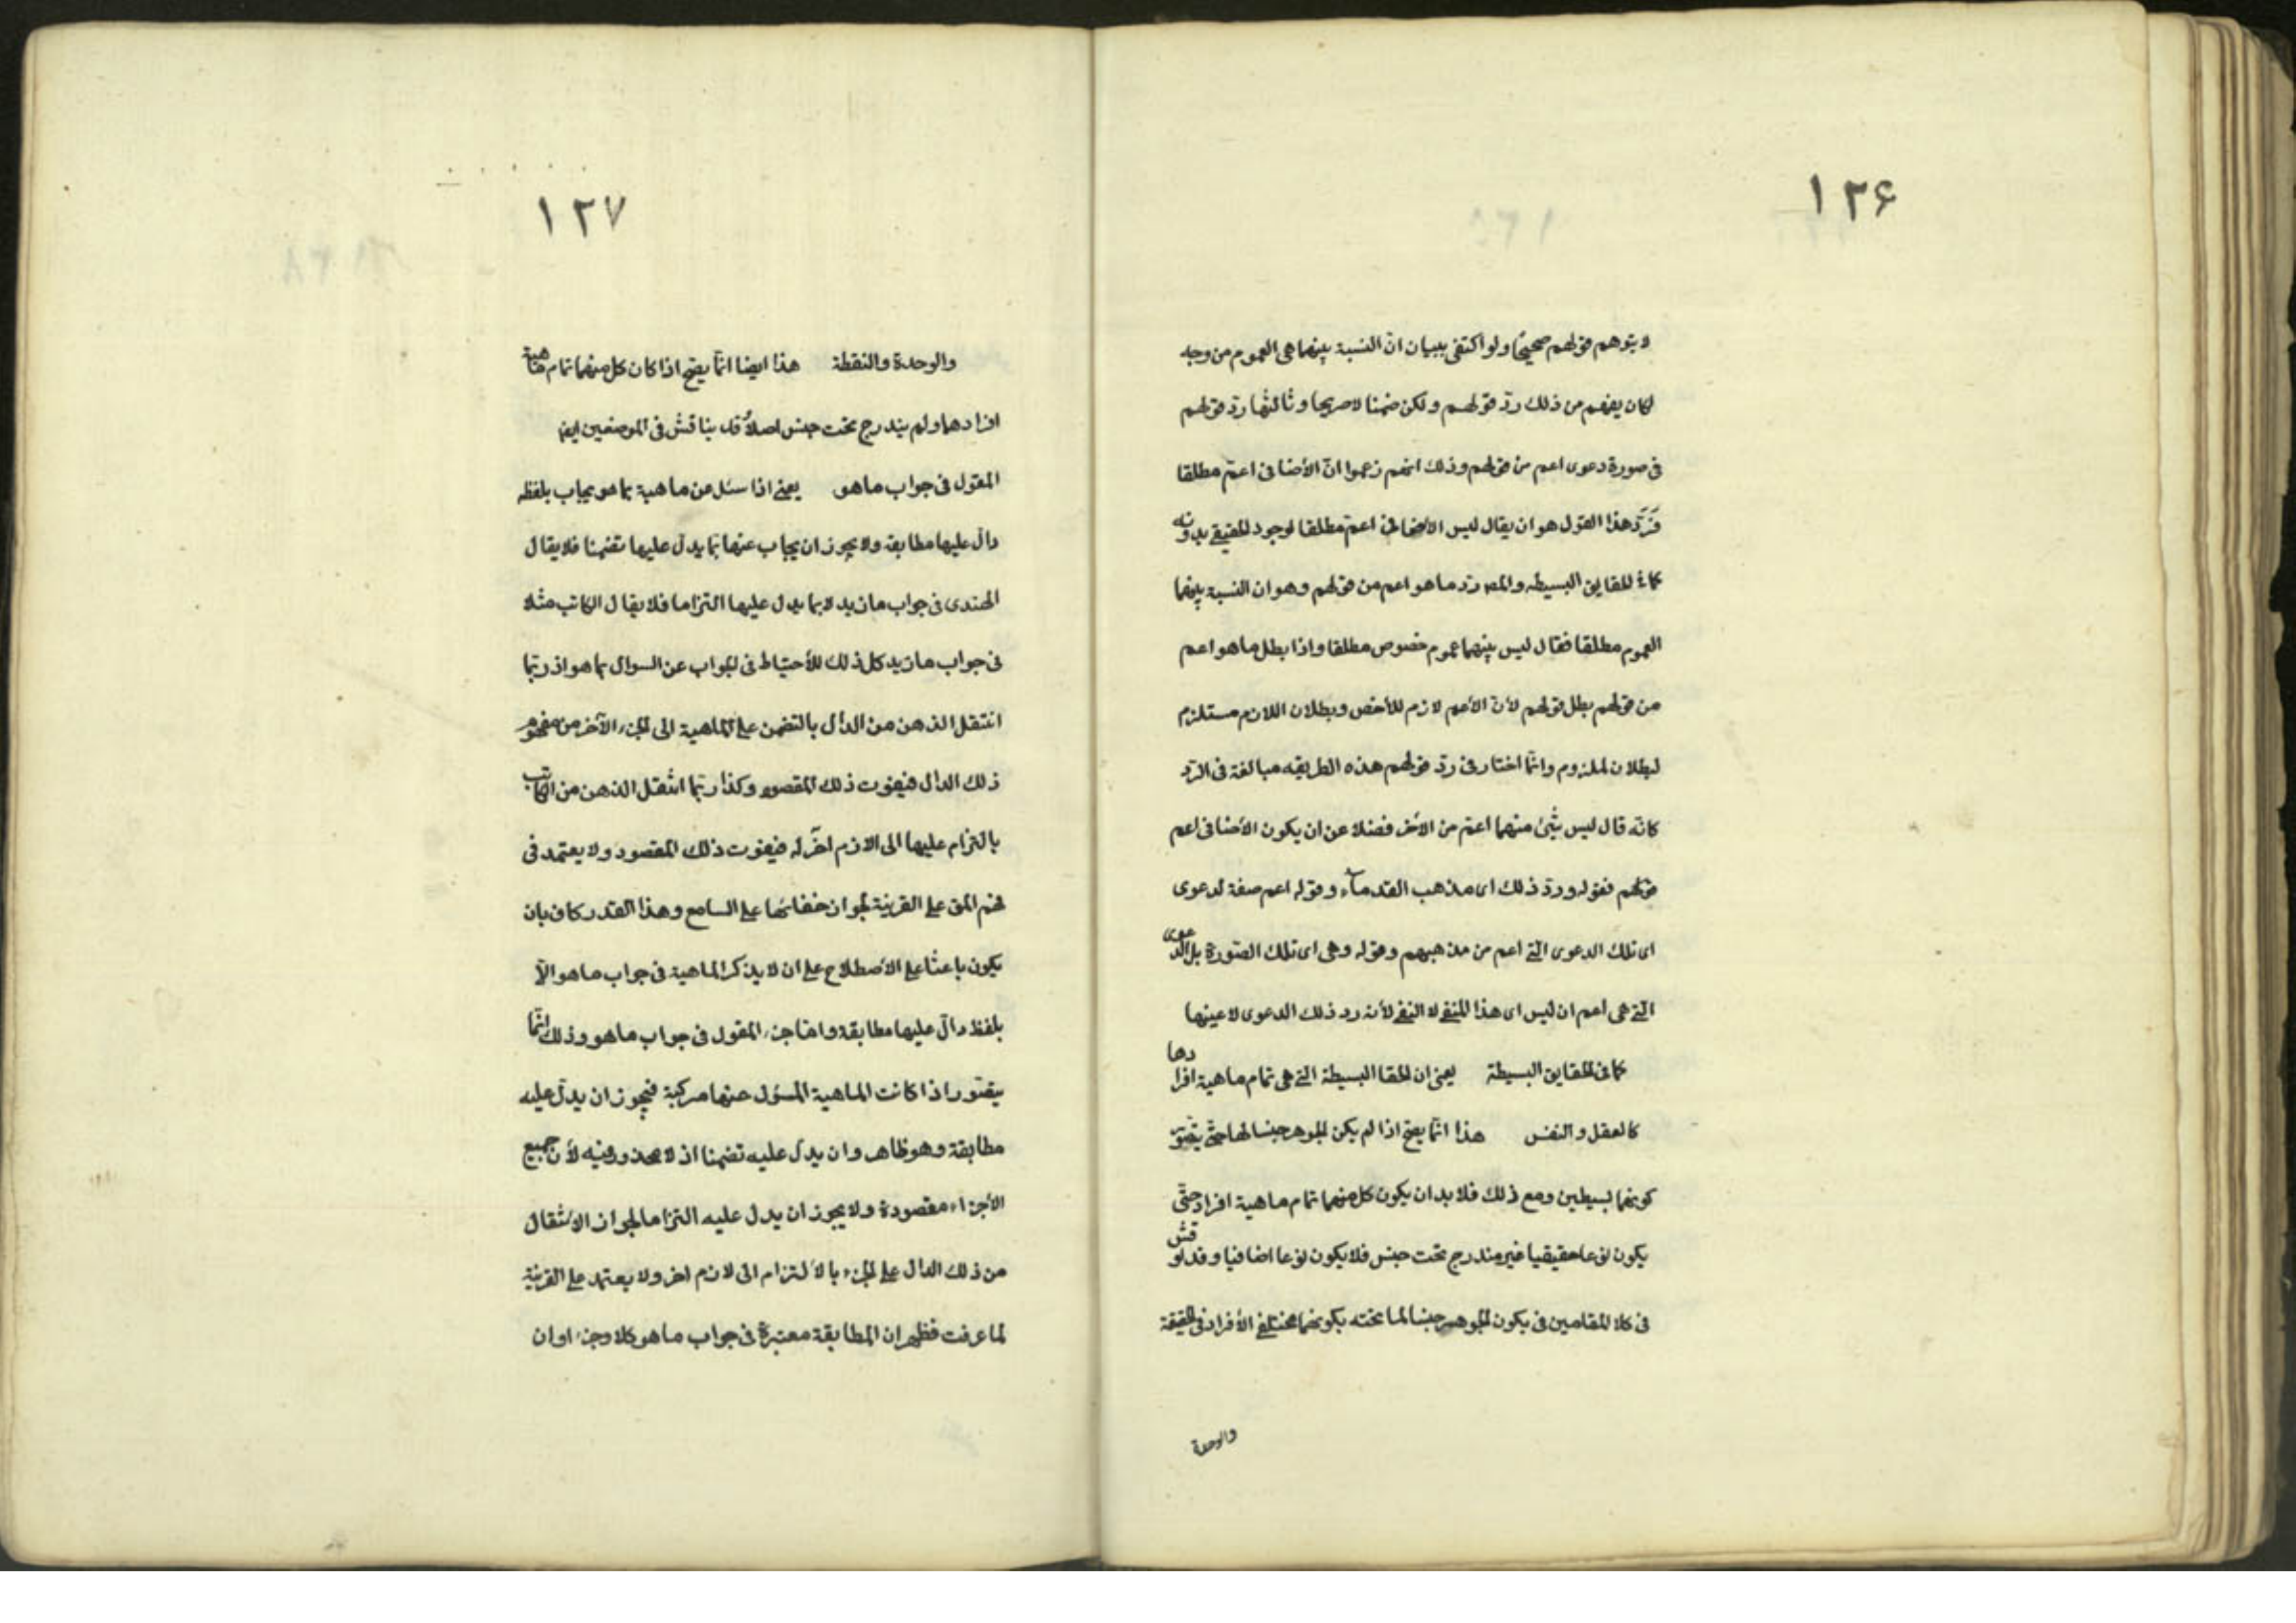 ١٢۶
لا يتوهم قولهم صحيحًا ولو اكتفى ببيان انّ النسبة بينهما هى العموم من وجه
لكان يفهم من ذلك ردّ قولهم ولكن ضمنا لا صريحا وثالثها ردّ قولهم
فى صورة دعوى اعم من قولهم وذلك انهم زعموا انّ الأضافى اعمّ مطلقا
فَرَدّ هذا القول هو ان يقال ليس الأضافى اعمّ مطلقا لوجود الحقيقى بدونه
كما فى الحقايق البسيطه والمص ردّ ما هو اعم من قولهم وهو ان النسبة بينهما
العموم مطلقا فقال ليس بينهما عموم خصوص مطلقا واذا بطل ما هو اعم
من قولهم بطل قولهم لأنّ الأعم لازم للأخص وبطلان اللازم مستلزم
لبطلان الملزوم وانّما اختار فى ردّ قولهم هذه الطريقه مبالغة فى الرّد
كانّه قال ليس شئ منهما اعمّ من الأخر فضلا عن ان يكون الأضافى اعم
قولهم فقوله وردّ ذلك اى مذهب القدمآء وقوله اعم صفة لدعوى
اى تلك الدعوى الّتى اعم من مذهبهم وقوله وهى اى تلك الصّورة بل الدّعوى
الّتى هى اعم ان ليس اى هذا المنفى لا النفى لأنه رد ذلك الدعوى لا عينها
كما فى الحقايق البسيطة يعنى ان الحقا البسيطة التى هى تمام ماهية افرادها
كالعقل والنفس هذا انّما يصح اذا لم يكن الجوهر جنسا لها حتّى يتصّور
كونهما بسيطين ومع ذلك فلا بد ان يكون كل منهما تمام ماهية افراد حتّى
يكون نوعا حقيقيا غير مندرج تحت جنس فلا يكون نوعا اضافيا وقد نوقش
فى كلا المقامين فى يكون الجوهر جنسا لما تحته بكونهما مختلفى الأفراد فى الحقيقة
والوحدة
١٢٧
والوحدة والنقطة هذا ايضا انّما يصّح اذا كان كل منهما تمام ماهية
افرادهما ولم يندرج تحت جنس اصلاً وقد يناقش فى الموضعين ايضا
المقول فى جواب ما هو يعنى اذا سئل عن ماهية بما هو يجاب بلفظ
دال عليها مطابقة ولا يجوز ان يجاب عنها بما يدلّ عليها تضمنا فلا يقال
الهندى فى جواب ما زيد لا بما يدل عليها التزاما فلا يقال الكاتب مثلا
فى جواب ما زيد كل ذلك للأحتياط فى الجواب عن السوال بما هو اذ ربّما
انتقل الذهن من الدال بالتضمن على الماهية الى الجزء الآخر من مفهوم
ذلك الدال فيفوت ذلك المقصود وكذا ربّما انتقل الذهن من الكاتب
بالتزام عليها الى الازم اخر له فيفوت ذلك المقصود ولا يعتمد فى
فهم المق على القرينة لجواز خفائها على السامع وهذا القدر كاف بان
يكون باعثا على الأصطلاح على ان لا يذكر الماهية فى جواب ما هو الّا
بلفظ دالّ عليها مطابقة وامّا جزء المقول فى جواب ما هو وذلك انّما
يتصّور اذا كانت الماهية المسؤل عنها مركبة فيجوز ان يدلّ عليه
مطابقة وهو ظاهر وان يدلّ عليه تضمنا اذ لا محذور فيه لأن جميع
الأجزاء مقصودة ولا يجوز ان يدل عليه التزاما لجواز الأنتقال
من ذلك الدال على الجزء بالألتزام الى لازم اخر ولا يعتمد على القرينة
لما عرفت فظهر ان المطابقة معتبرة فى جواب ما هو كلا وجزء اوان